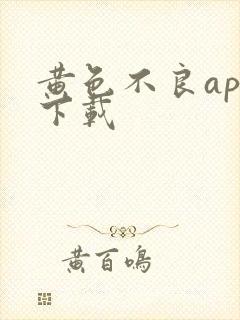 黄色不良ap
下载
黄百鸣